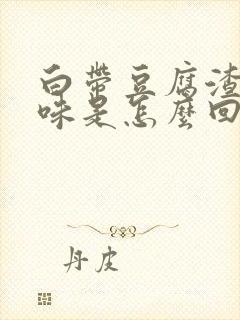 白帶豆腐渣
味是怎麼回
丹皮